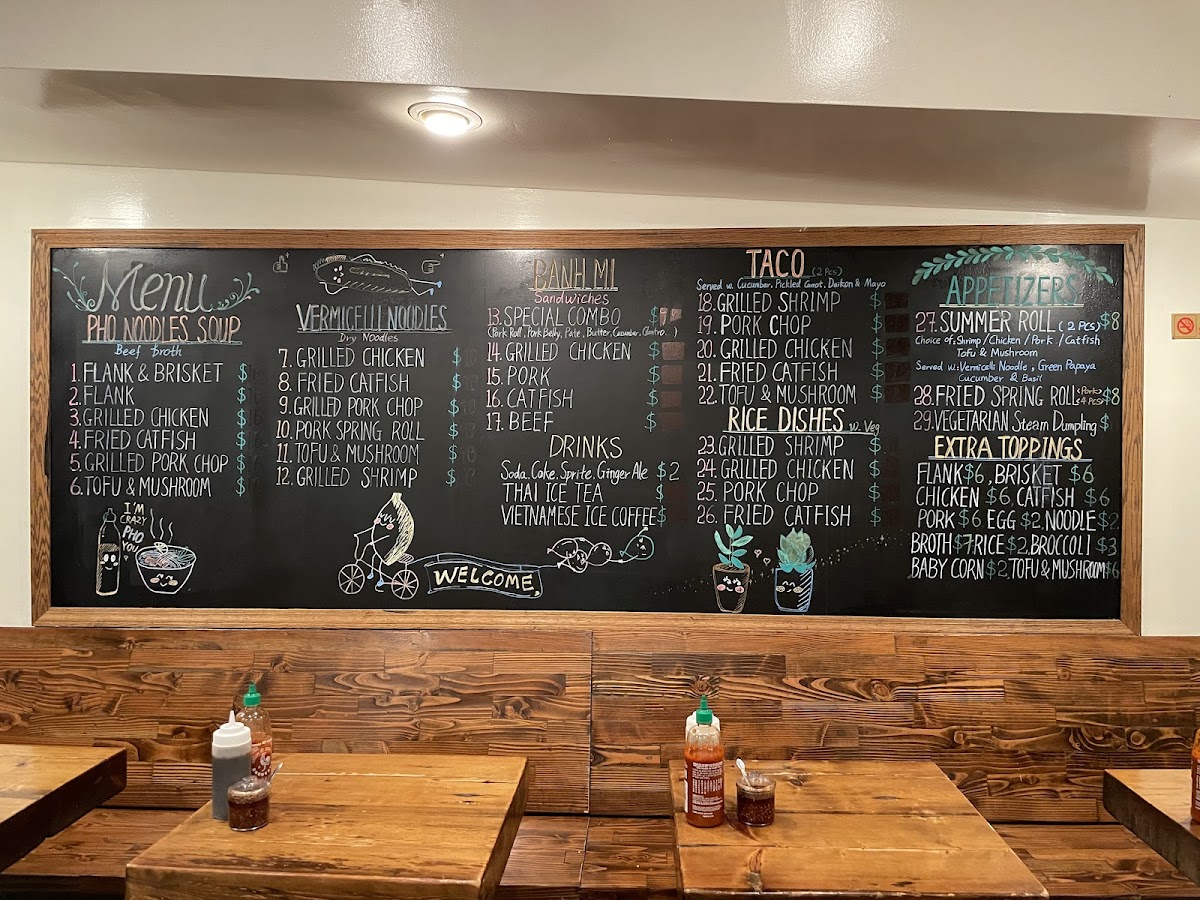 Menu
PHO NOODLES SOUP
Beef broth
1. FLANK & BRISKET $
2. FLANK $
3. GRILLED CHICKEN $
4. FRIED CATFISH $
5. GRILLED PORK CHOP $
6. TOFU & MUSHROOM $
I'M
CRAZY
PHO
YOU
VERMICELLI NOODLES
Dry Noodles
7. GRILLED CHICKEN $
8. FRIED CATFISH $
9. GRILLED PORK CHOP $
10. PORK SPRING ROLL $
11. TOFU & MUSHROOM $
12. GRILLED SHRIMP $
WELCOME
BANH MI
Sandwiches
13. SPECIAL COMBO $
(Pork Roll, Pork Belly, Pate, Butter, Cucumber, Cilantro...)
14. GRILLED CHICKEN $
15. PORK $
16. CATFISH $
17. BEEF $
DRINKS
Soda, Coke, Sprite, Ginger Ale $2
THAI ICE TEA $
VIETNAMESE ICE COFFEE $
TACO (2 Pcs)
Served w. Cucumber, Pickled Carrot, Daikon & Mayo
18. GRILLED SHRIMP $
19. PORK CHOP $
20. GRILLED CHICKEN $
21. FRIED CATFISH $
22. TOFU & MUSHROOM $
RICE DISHES w. Veg
23. GRILLED SHRIMP $
24. GRILLED CHICKEN $
25. PORK CHOP $
26. FRIED CATFISH $
APPETIZERS
27. SUMMER ROLL (2 PCS) $8
Choice of: Shrimp / Chicken / Pork / Catfish
Tofu & Mushroom
Served w: Vermicelli Noodle, Green Papaya
Cucumber & Basil
28. FRIED SPRING ROLL (Pork) (4 PCS) $8
29. VEGETARIAN Steam Dumpling $
EXTRA TOPPINGS
FLANK $6, BRISKET $6
CHICKEN $6, CATFISH $6
PORK $6 EGG $2, NOODLE $2
BROTH $7 RICE $2, BROCCOLI $3
BABY CORN $2, TOFU & MUSHROOM $6